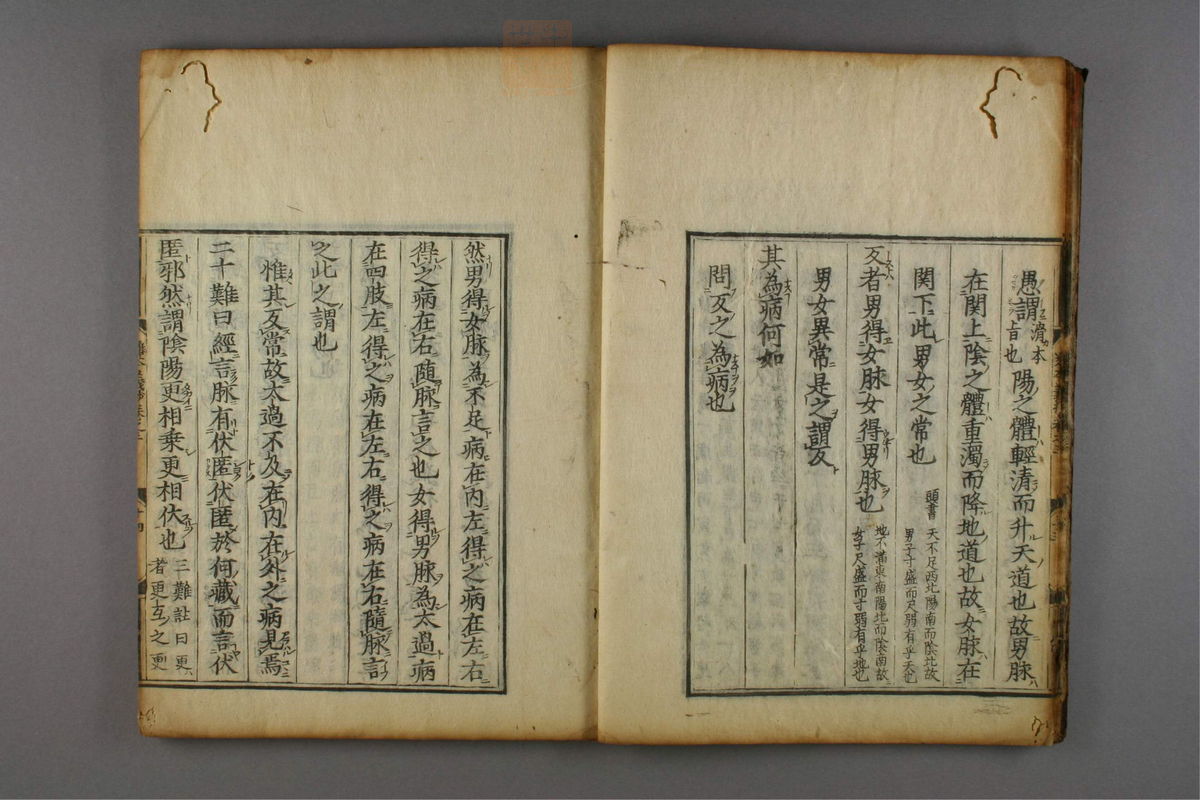 愚謂滑本旨也陽之體輕清而升天道也故男脉
在関上陰之體重濁而降地道也故女脉在
関下此男女之常也頭書天不足西北陽南而陰北故男子寸盛而尺弱有乎天也
反者男得女脉女得男脉也地不滿東南陽北而陰南故女子尺盛而寸弱有乎地也
男女異常是之謂反
其為病何如
問反之為病也
然男得女脉為不足病在內左得之病在左右
得之病在右随脉言之也女得男脉為太過病
在四肢左得之病在左右得之病在右隨脉言
之此之謂也
惟其反常故太過不及在內在外之病見焉
二十難曰經言脉有伏匿伏匿於何藏而言伏
匿邪然謂陰陽更相乗更相伏也三難註曰更者更互之更